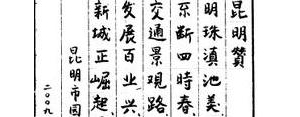 昆明赞
明珠滇池美
不断四時春
交通景观路
发展百业兴
新城正崛起
昆明市园
二〇〇九